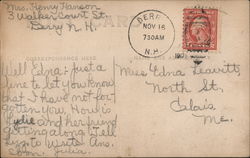 Mrs. Henry Hanson
3 Walker Court St.
Derry N.H.
DERRY
NOV 16
730AM
N.H.
CORRESPONDENCE HERE
Well Edna: just a
line to let you know
that I have not for-
gotten you. How is
Lydie and her friend
getting along. Tell
Lys. to write. Ans.
soon. Julia.
Miss Edna Leavitts
North St.
Calais
Me.